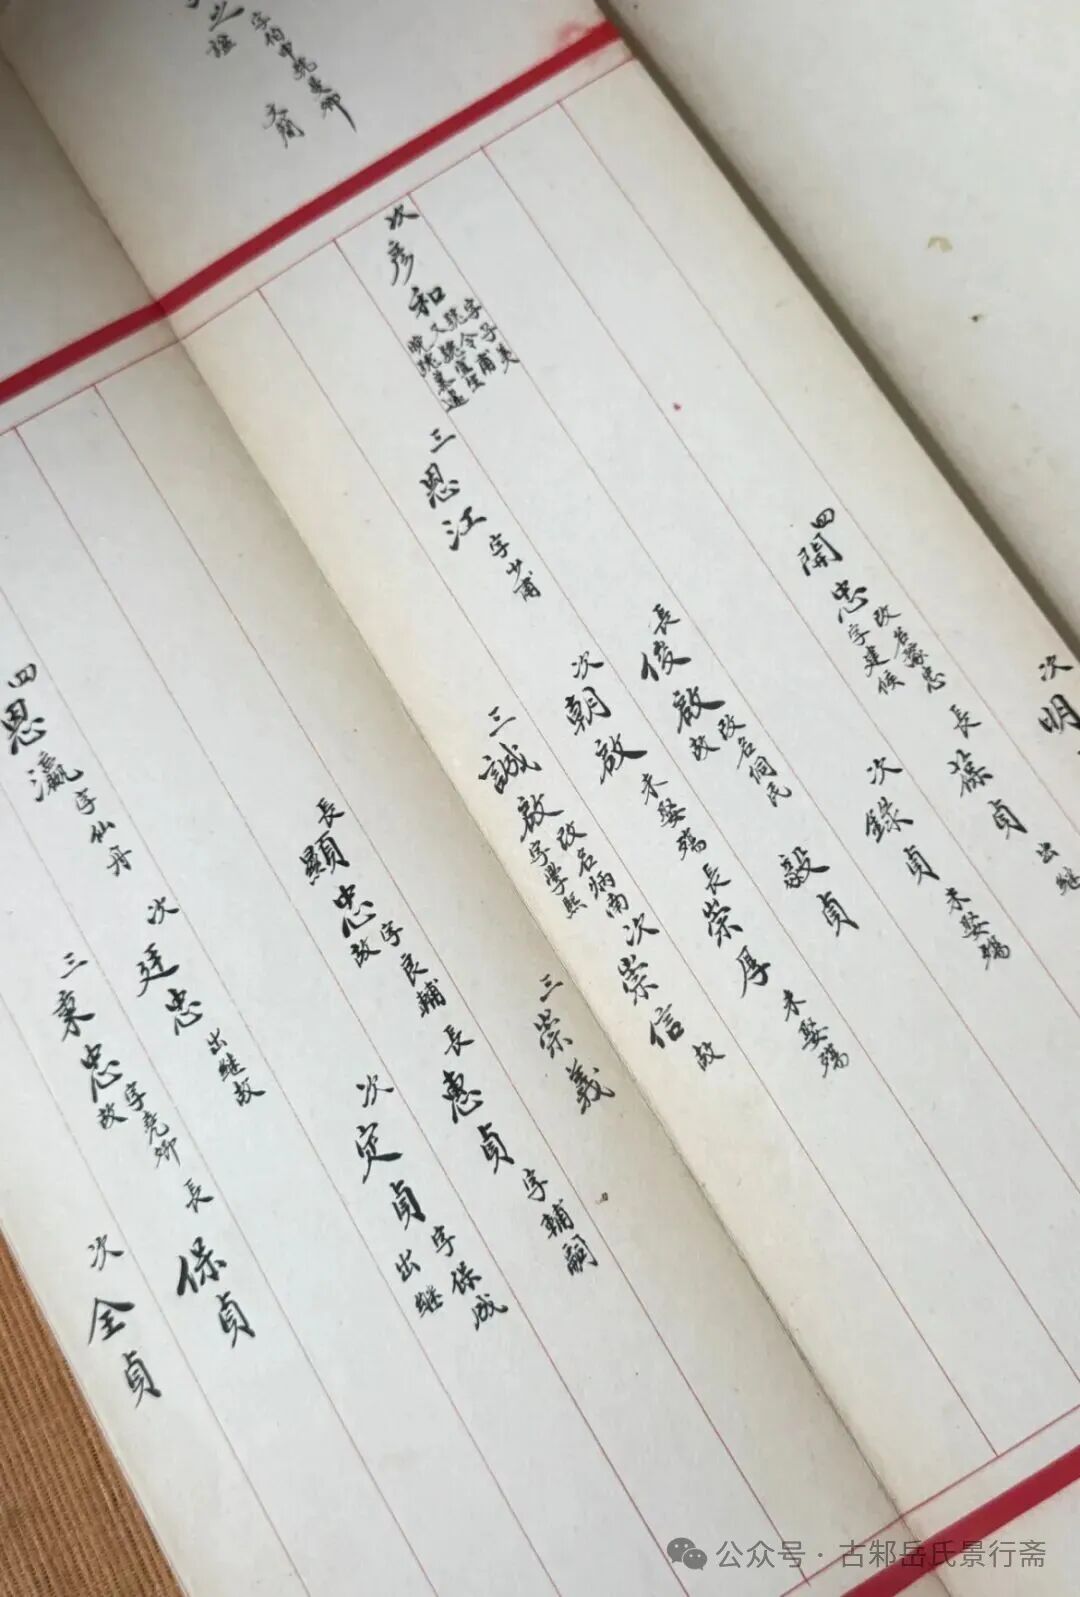 字伯申號曼卿
之謚 文簡
次明
長葆貞 出繼
四開忠 改名豫忠 字建侯
次錄貞 未娶殤
毅貞
長俊啟 改名侗民 故
長崇厚 未娶殤
次朝啟 未娶殤
次崇信 故
三誠啟 改名炳南 字學熙
三崇義
次彥和 字子美 號令甫 又號宜生 晚號篡遺
三恩江 字少甫
長顯忠 字良輔 故
長惠貞 字輔嗣
次定貞 字保成 出繼
次廷忠 出繼故
長保貞
三秉忠 字堯卿 故
次全貞
四恩瀛 字仙丹
公众号·古邾岳氏景行斋